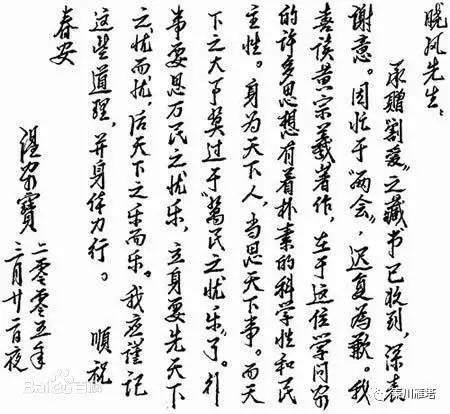 晓风先生：
承赠“割爱”之藏书已收到，深表
谢意。因忙于“两会”，迟复为歉。我
喜读黄宗羲著作，在于这位学问家
的许多思想有着朴素的科学性和民
主性。身为天下人，当思天下事。而天
下之大事莫过于“万民之忧乐”了。行
事要思万民之忧乐，立身要先天下
之忧而忧，后天下之乐而乐。我应谨记
这些道理，并身体力行。 顺祝
春安
温家宝
二零零五年
三月廿二日夜
Bai 百科
川雁塔